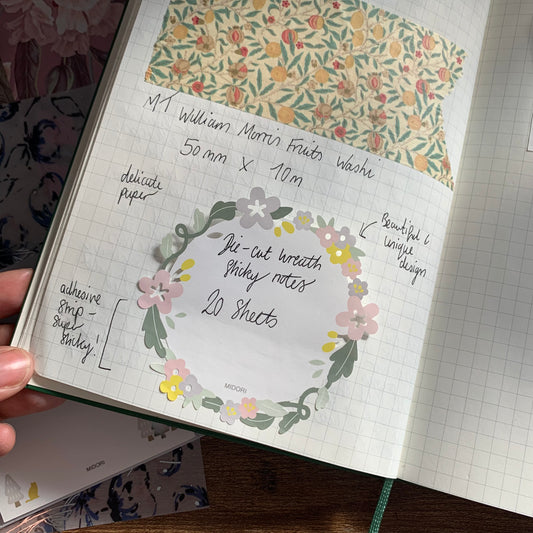 MT William Morris Fruits Washi
50mm X 10m
delicate
paper
Beautiful &
unique
design
Die-cut wreath
sticky notes
20 Sheets
adhesive
strip -
super
sticky!
MIDORI
MIDORI